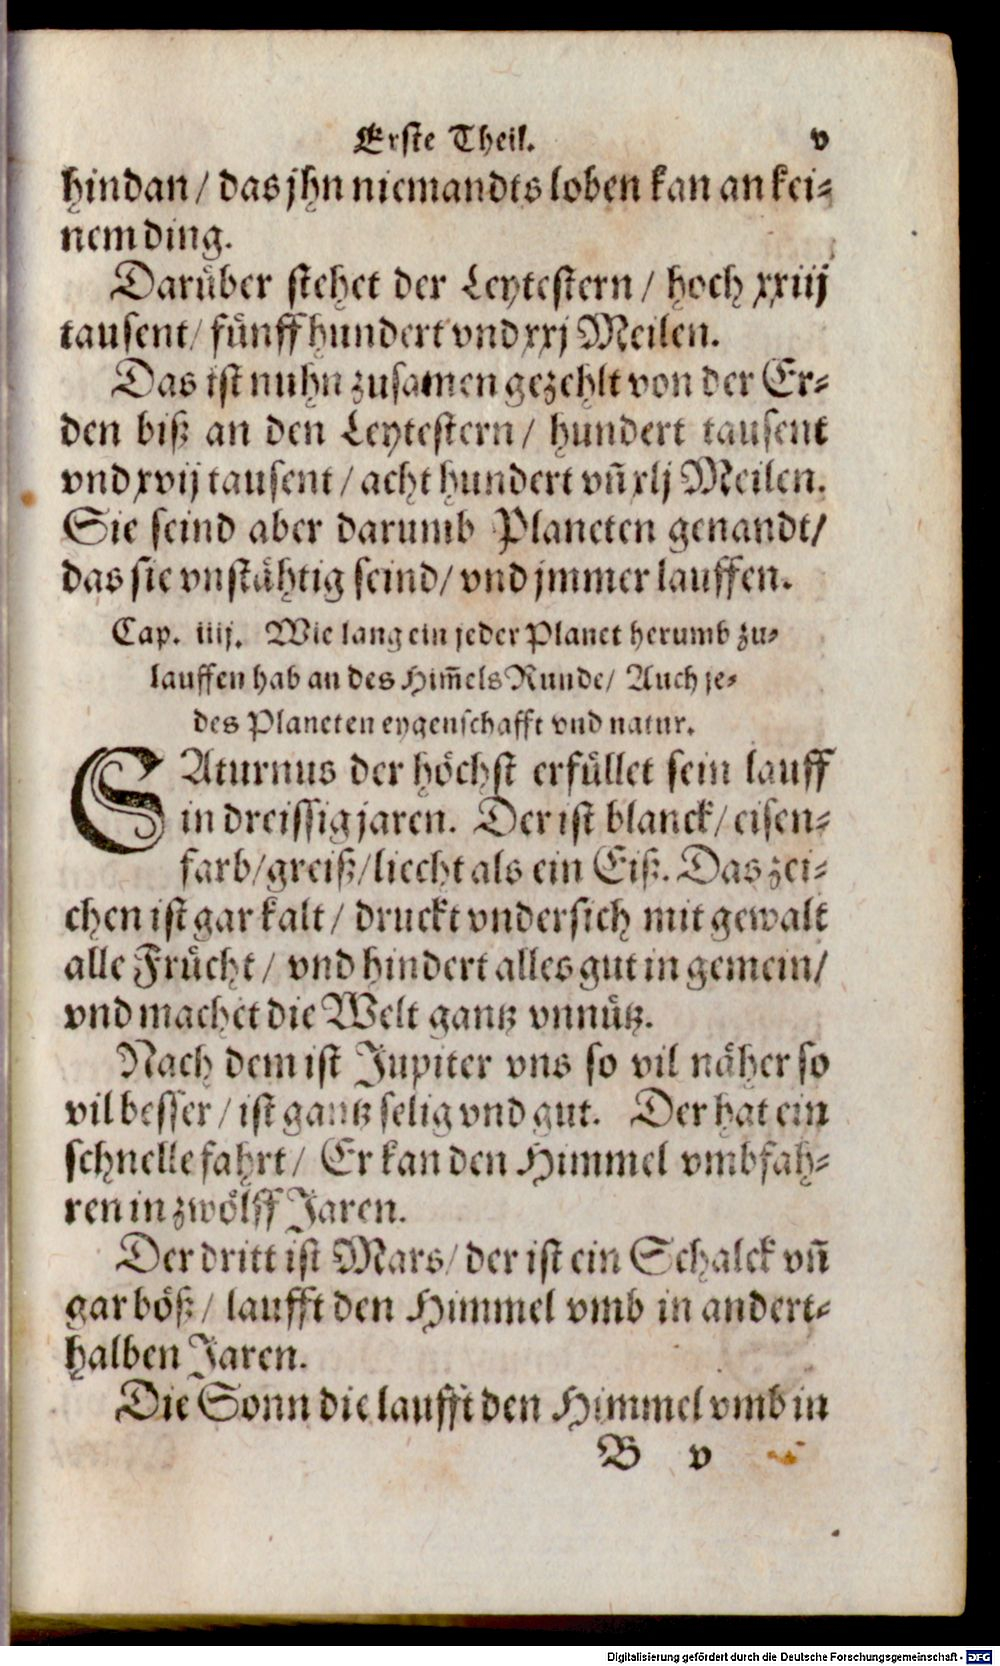 Erste Theil. v
hindan / das jhn niemandts loben kan an kei-
nem ding.
Darüber stehet der Leytestern / hoch xxiij
tausent / fünff hundert vnd xxj Meilen.
Das ist nuhn zusamen gezehlt von der Er-
den biß an den Leytestern / hundert tausent
vnd xvij tausent / acht hundert vn̄ xlj Meilen.
Sie seind aber darumb Planeten genandt /
das sie vnstähtig seind / vnd jmmer lauffen.
Cap. iiij. Wie lang ein jeder Planet herumb zu-
lauffen hab an des Him̄els Runde / Auch je-
des Planeten eygenschafft vnd natur.
SAturnus der höchst erfüllet sein lauff
in dreissig jaren. Der ist blanck / eisen-
farb / greiß / liecht als ein Eiß. Das zei-
chen ist gar kalt / druckt vndersich mit gewalt
alle Frücht / vnd hindert alles gut in gemein /
vnd machet die Welt gantz vnnütz.
Nach dem ist Jupiter vns so vil näher so
vil besser / ist gantz selig vnd gut. Der hat ein
schnelle fahrt / Er kan den Himmel vmbfah-
ren in zwölff Jaren.
Der dritt ist Mars / der ist ein Schalck vn̄
gar böß / laufft den Himmel vmb in andert-
halben Jaren.
Die Sonn die laufft den Himmel vmb in
B v
Digitalisierung gefördert durch die Deutsche Forschungsgemeinschaft - DFG